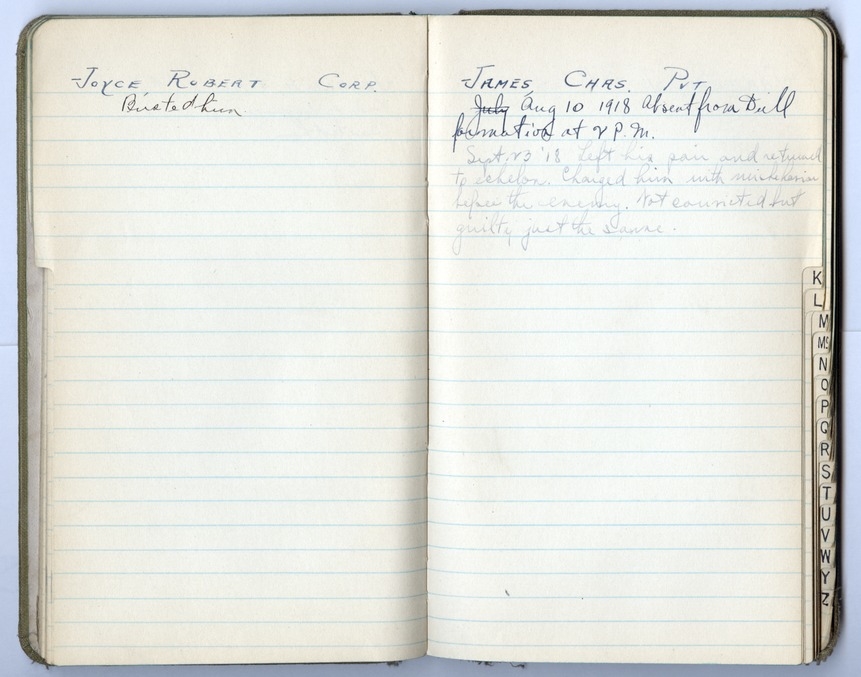 JOYCE, ROBERT CORP.
Busted him.
JAMES, CHAS. PVT
July Aug 10 1918 Absent from Drill
formation at 2 P.M.
Sept 23 '18 Left his pair and returned
to echelon. Charged him with misbehavior
before the enemy. Not convicted but
guilty just the same.
K
L
M
Mc
N
O
P
Q
R
S
T
U
V
W
Y
Z